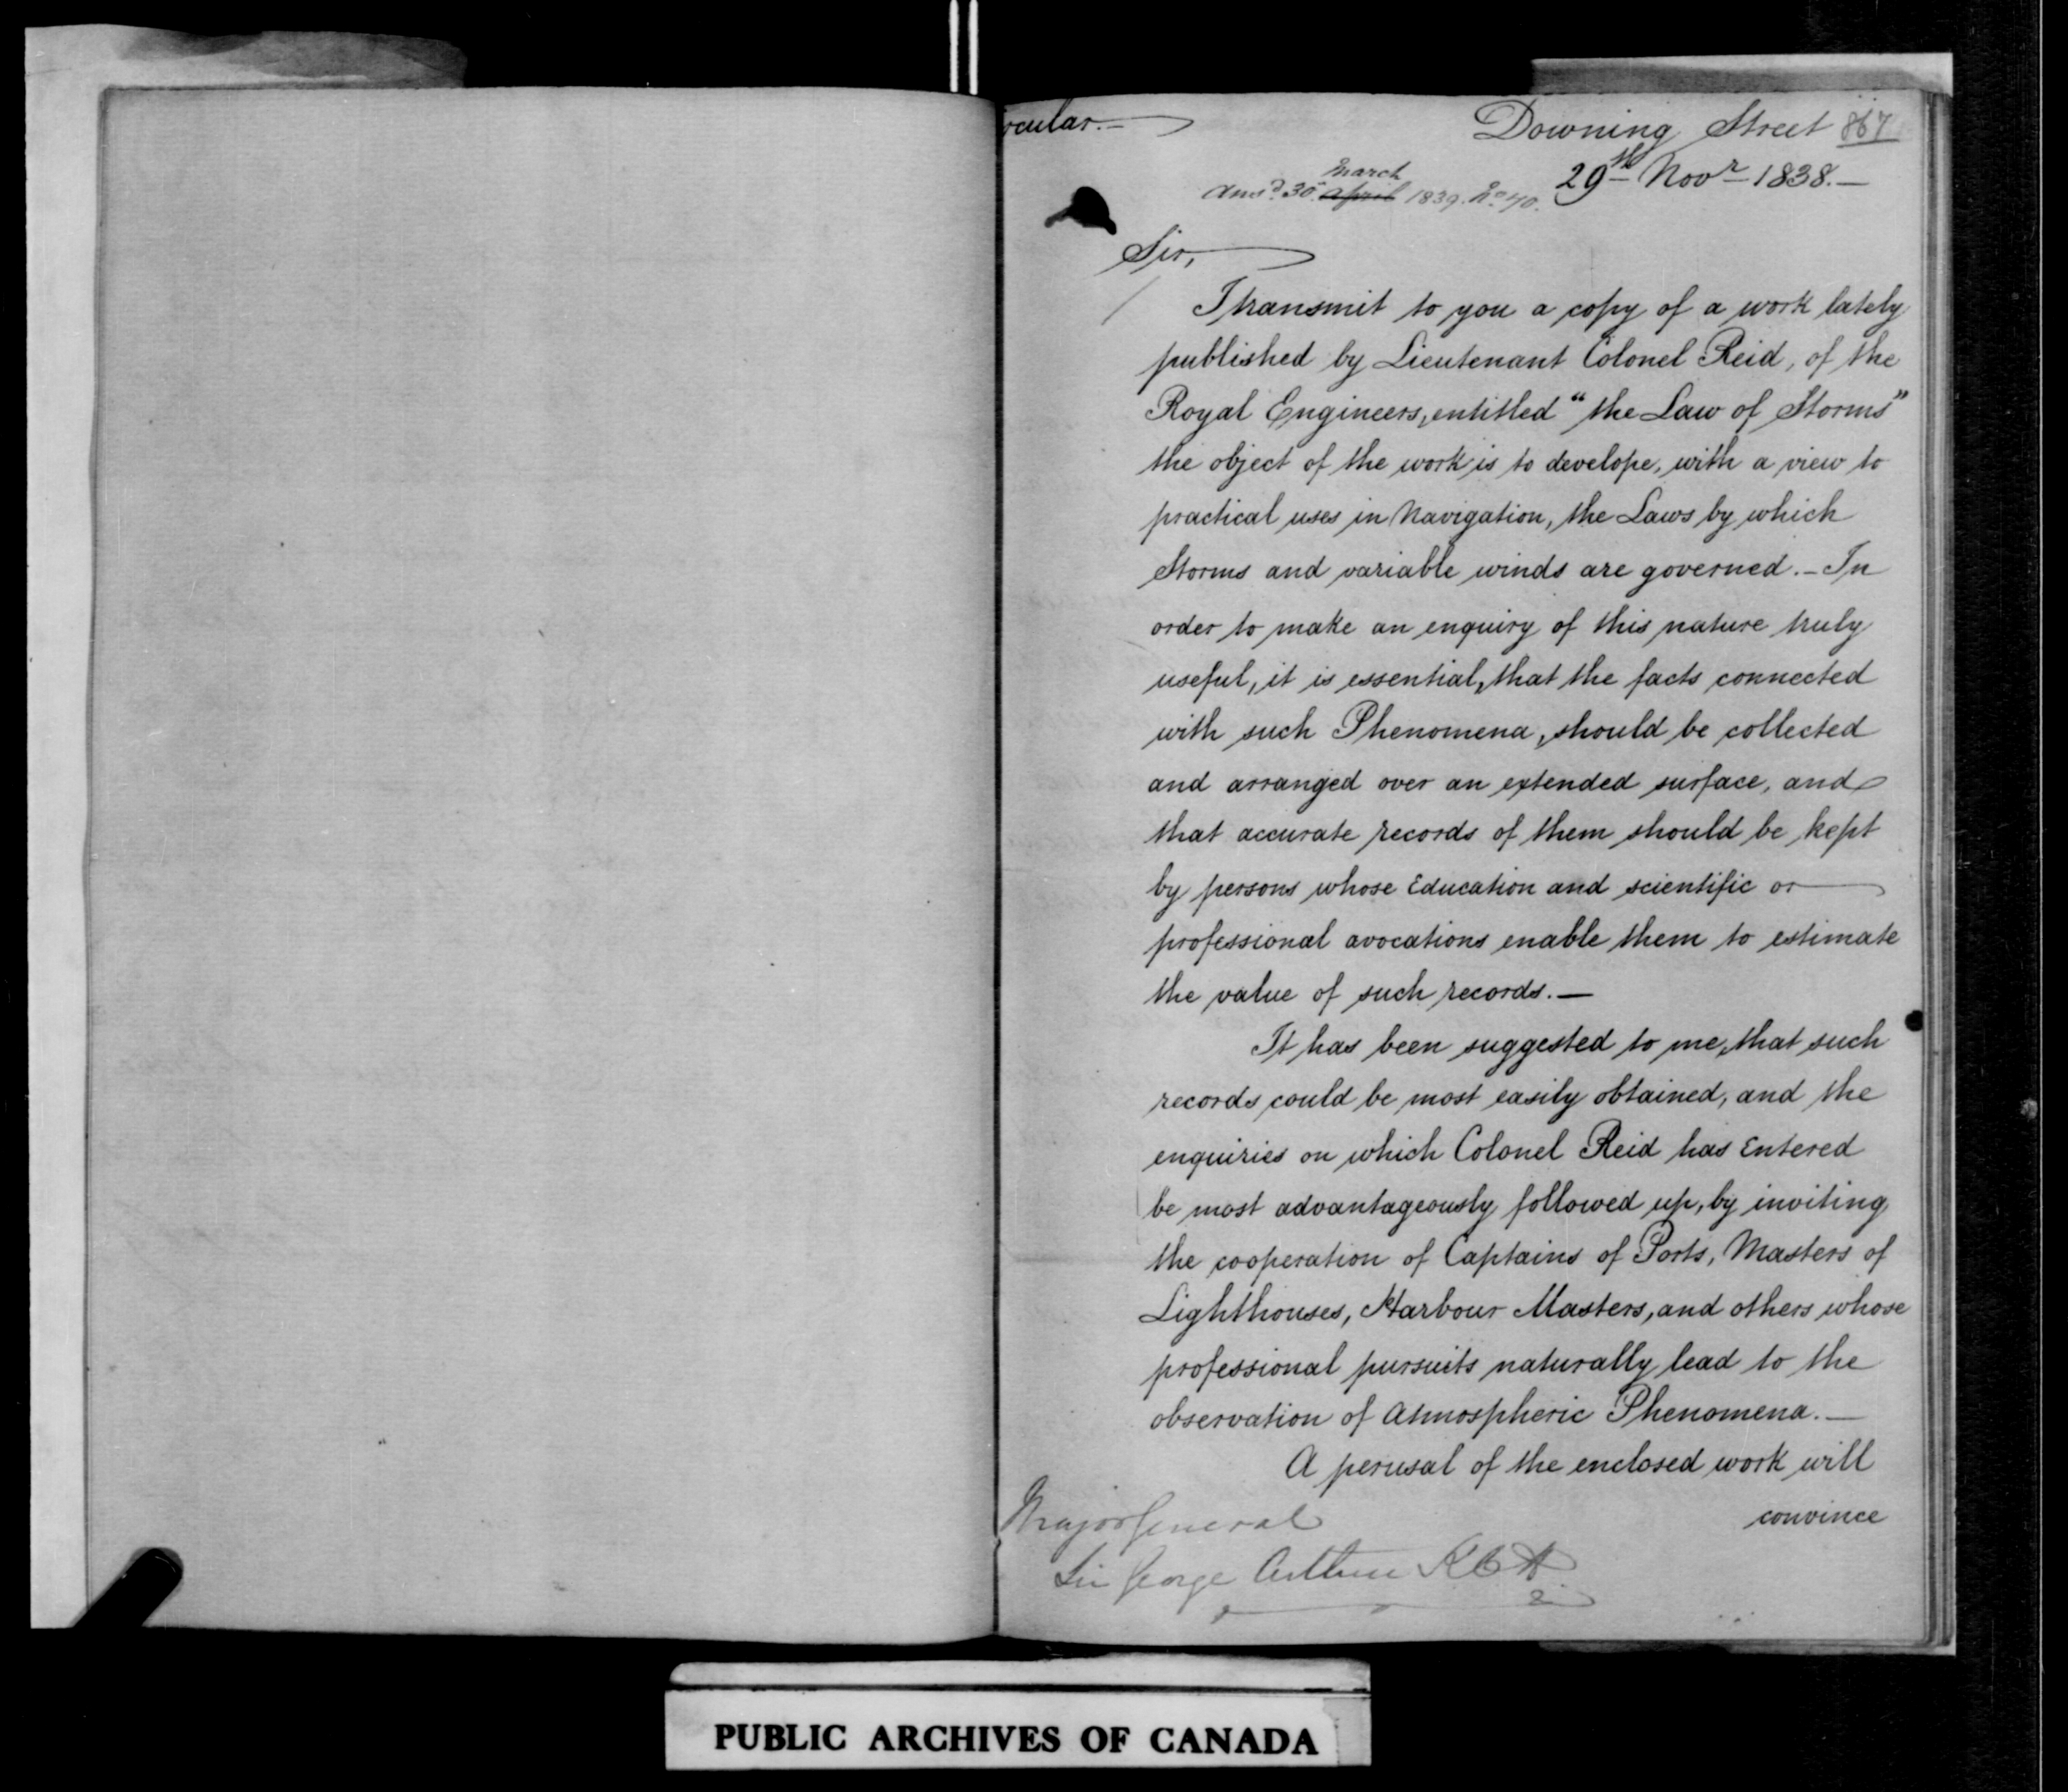 rcular.—
Downing Street 867
29th Novr 1838.—
March
Ansd. 30 April 1839. No. 40.
Sir,
I transmit to you a copy of a work lately
published by Lieutenant Colonel Reid, of the
Royal Engineers, entitled "the Law of Storms"
the object of the work is to develope, with a view to
practical uses in Navigation, the Laws by which
Storms and variable winds are governed.— In
order to make an enquiry of this nature truly
useful, it is essential, that the facts connected
with such Phenomena, should be collected
and arranged over an extended surface, and
that accurate records of them should be kept
by persons whose Education and scientific or
professional avocations enable them to estimate
the value of such records.—
It has been suggested to me, that such
records could be most easily obtained, and the
enquiries on which Colonel Reid has Entered
be most advantageously followed up, by inviting
the cooperation of Captains of Ports, Masters of
Lighthouses, Harbour Masters, and others whose
professional pursuits naturally lead to the
observation of Atmospheric Phenomena.—
A perusal of the enclosed work will
convince
Major General
Sir George Arthur KCH
PUBLIC ARCHIVES OF CANADA